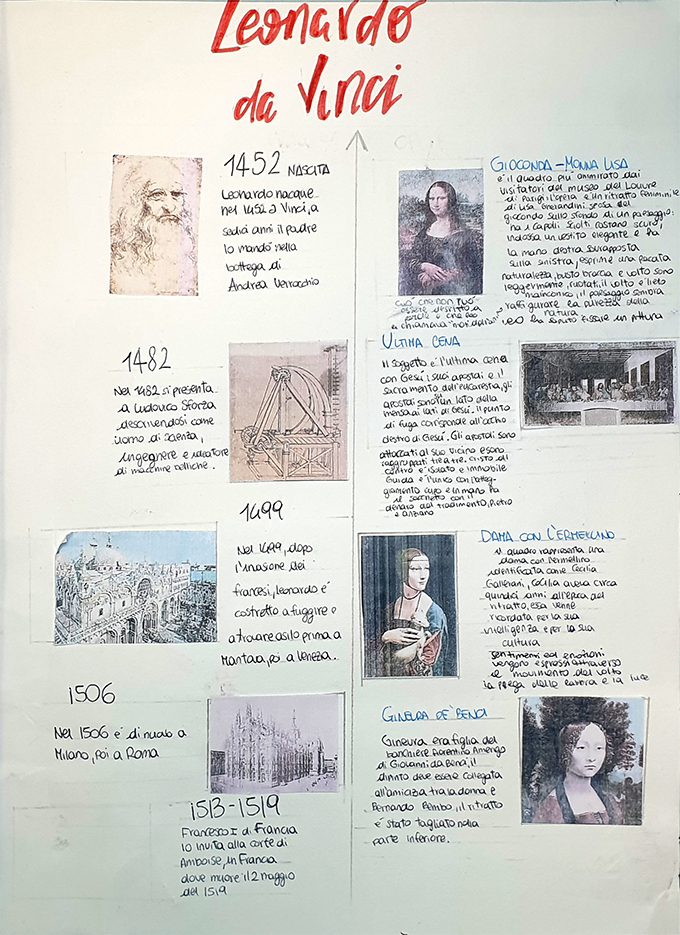 Leonardo
da Vinci
1452 NASCITA
Leonardo nacque
nel 1452 a Vinci, a
sedici anni il padre
lo mandò nella
bottega di
Andrea Verrochio
1482
Nel 1482 si presenta
a Ludovico Sforza
descrivendosi come
uomo di scienza,
ingegnere e ideatore
di macchine belliche.
1499
Nel 1499, dopo
l'invasione dei
francesi, leonardo é
costretto a fuggire e
a trovare asilo prima a
Mantova, poi a Venezia.
1506
Nel 1506 é di nuovo a
Milano, poi a Roma
1513-1519
Francesco I di Francia
lo invita alla corte di
Amboise, in Francia
dove muore il 2 maggio
del 1519
GIOCONDA - MONNA LISA
é il quadro più ammirato dai
visitatori del museo del Louvre
di Parigi l'opera é un ritratto femminile
di Lisa Gherardini sposa del
giocondo sullo sfondo di un paesaggio:
ha i capelli sciolti castano scuro,
indossa un vestito elegante e ha
la mano destra sovrapposta
sulla sinistra, esprime una pacata
naturalezza, busto braccia e volto sono
leggermente, ruotati, il volto é lieto
malinconico, il paesaggio sembra
raffigurare la purezza della
natura.
ciò che non può
essere descritto a
parole e che
si chiamava
fissare in pittura
ULTIMA CENA
Il soggetto é l'ultima cena
con Gesù, i suoi apostoli e il
sacramento dell'eucarestia, gli
apostoli sono lato della
mensa ai lati di Gesù. Il punto
di fuga corrisponde all'occhio
destro di Gesù. Gli apostoli sono
attoccati al suo vicino e sono
raggruppati tre a tre. Cristo al
centro é isolato e immobile
Giuda é l'unico con l'atteg-
giamento cupo e in mano ha
il sacchetto con il
denaro del tradimento, Pietro
é anziano
DAMA CON L'ERMELLINO
Il quadro rappresenta una
dama con l'ermellino
identificata come Cecilia
Gallerani, Cecilia aveva circa
quindici anni all'epoca del
ritratto, essa venne
ricordata per la sua
intelligenza e per la sua
cultura
sentimenti ed emozioni
vengono espressi attraverso
il movimento del volto
la piega delle labbra e la luce
GINEVRA DE' BENCI
Ginevra era figlia del
banchiere fiorentino Amerigo
di Giovanni da Benci, il
dipinto deve essere collegata
all'amicizia tra la donna e
Bernardo Bembo, il ritratto
é stato tagliato nella
parte inferiore.